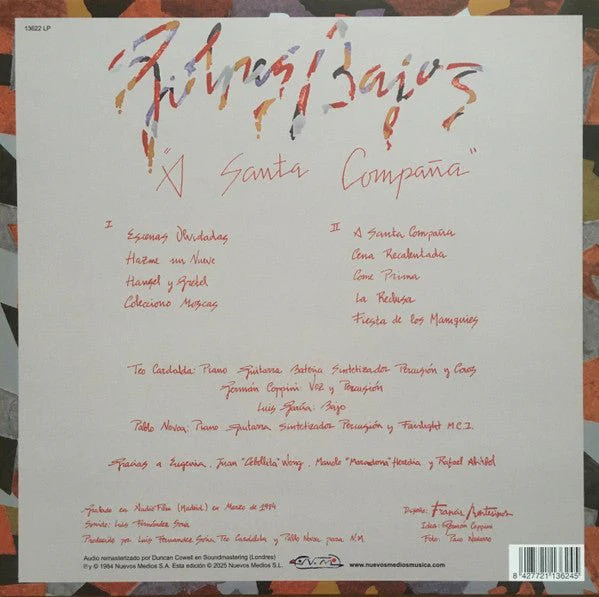 13622 LP
Golpes Bajos
"A Santa Compaña"
I
Escenas Olvidadas
Hazme un Nueve
Hansel y Gretel
Colecciono Moscas
II
A Santa Compaña
Cena Recalentada
Come Prima
La Reclusa
Fiesta de los Maniquíes
Teo Cardalda: Piano Guitarra Batería Sintetizador Percusión y Coros
Germán Coppini: Voz y Percusión
Luis García: Bajo
Pablo Novoa: Piano Guitarra Sintetizador Percusión y Fairlight M.C.I.
Gracias a Eugenia, Juan "Cebollita" Wong, Manolo "Maradona" Heredia y Rafael Abitbol
Grabado en Audio Film (Madrid) en Marzo de 1984
Sonido: Luis Fernández Soria
Producido por Luis Fernandez Soria, Teo Cardalda y Pablo Novoa para N.M.
Diseño: Francis Montesinos
Idea: Germán Coppini
Foto: Paco Navarro
Audio remasterizado por Duncan Cowell en Soundmastering (Londres)
℗ y © 1984 Nuevos Medios S.A. Esta edición © 2025 Nuevos Medios S.L.
www.nuevosmediosmusica.com
8 427721 136245